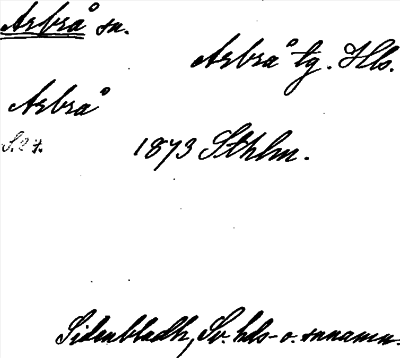 Arbrå sn.
Arbrå tg. Hls.
Arbrå
S. 27. 1873 Sthlm.
Sidenbladh, Sv. hds- o. snnamn.